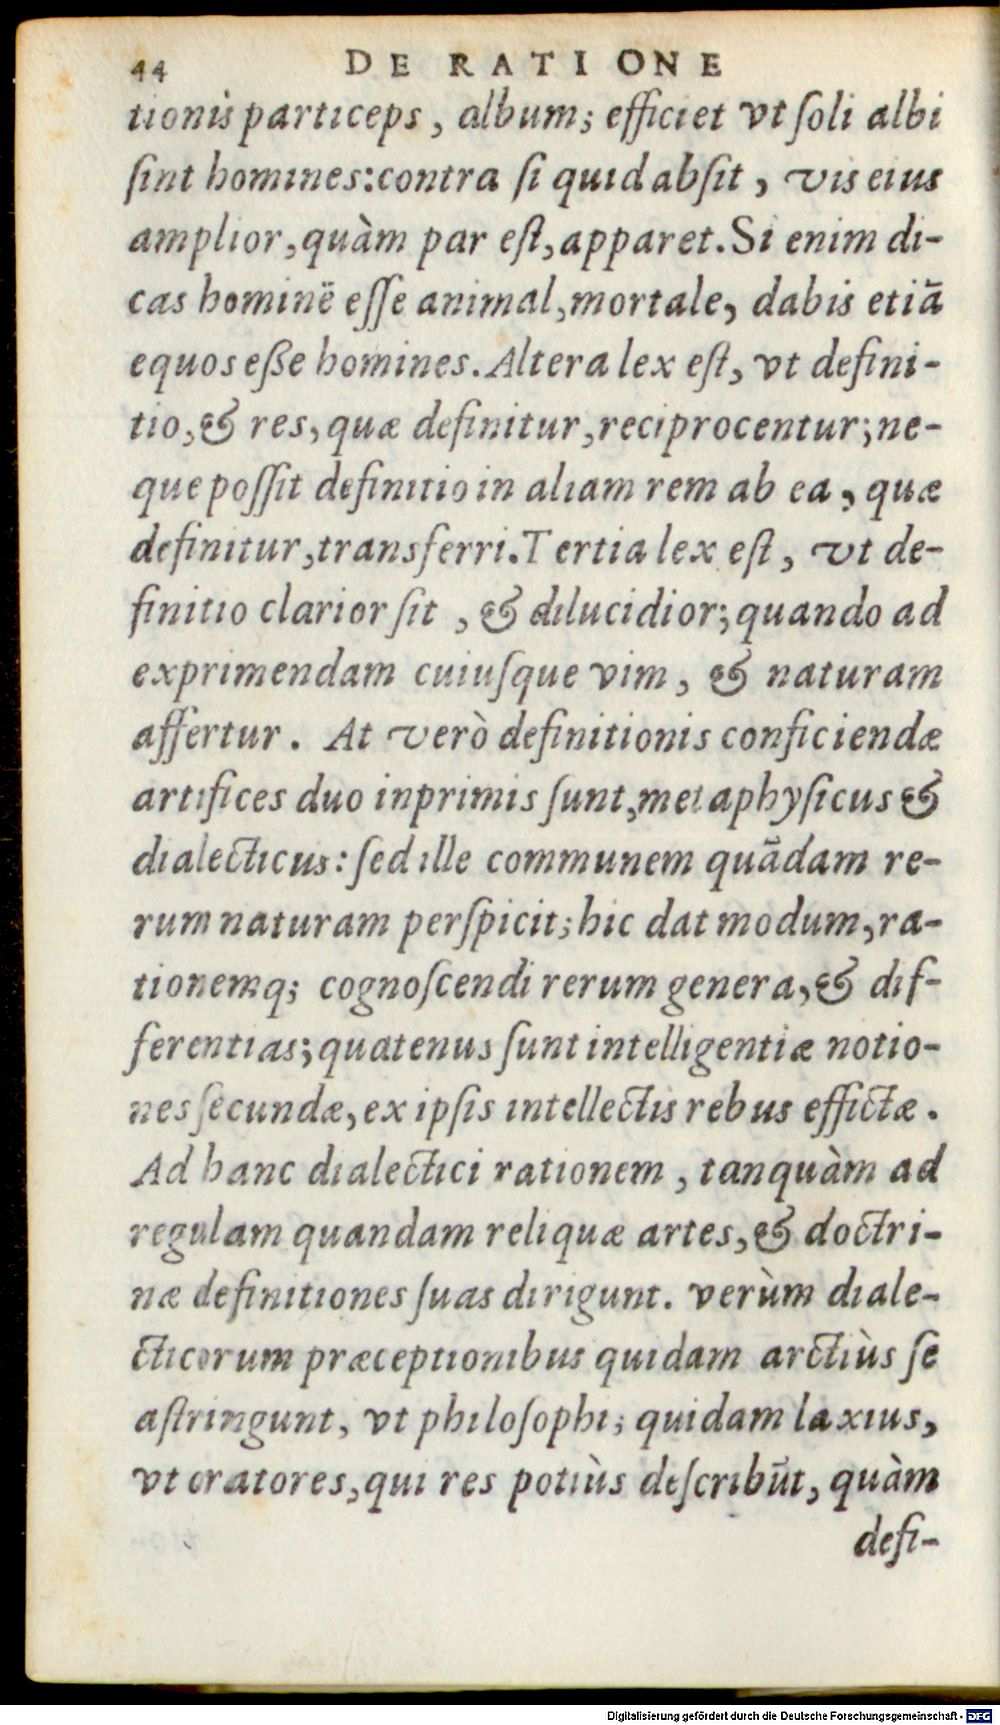 44 DE RATIONE
tionis particeps, album; efficiet vt ſoli albi
ſint homines: contra ſi quid abſit, vis eius
amplior, quàm par eſt, apparet. Si enim di-
cas hominẽ eſſe animal, mortale, dabis etiã
equos eße homines. Altera lex eſt, vt defini-
tio, & res, quæ definitur, reciprocentur; ne-
que poſſit definitio in aliam rem ab ea, quæ
definitur, transferri. Tertia lex eſt, vt de-
finitio clarior ſit, & dilucidior; quando ad
exprimendam cuiuſque vim, & naturam
affertur. At verò definitionis conficiendæ
artifices duo inprimis ſunt, metaphyſicus &
dialecticus: ſed ille communem quãdam re-
rum naturam perſpicit; hic dat modum, ra-
tionemq; cognoſcendi rerum genera, & dif-
ferentias; quatenus ſunt intelligentiæ notio-
nes ſecundæ, ex ipſis intellectis rebus effictæ.
Ad hanc dialectici rationem, tanquàm ad
regulam quandam reliquæ artes, & doctri-
næ definitiones ſuas dirigunt. verùm diale-
cticorum præceptionibus quidam arctiùs ſe
aſtringunt, vt philoſophi; quidam laxius,
vt oratores, qui res potiùs deſcribũt, quàm
defi-
Digitalisierung gefördert durch die Deutsche Forschungsgemeinschaft - DFG